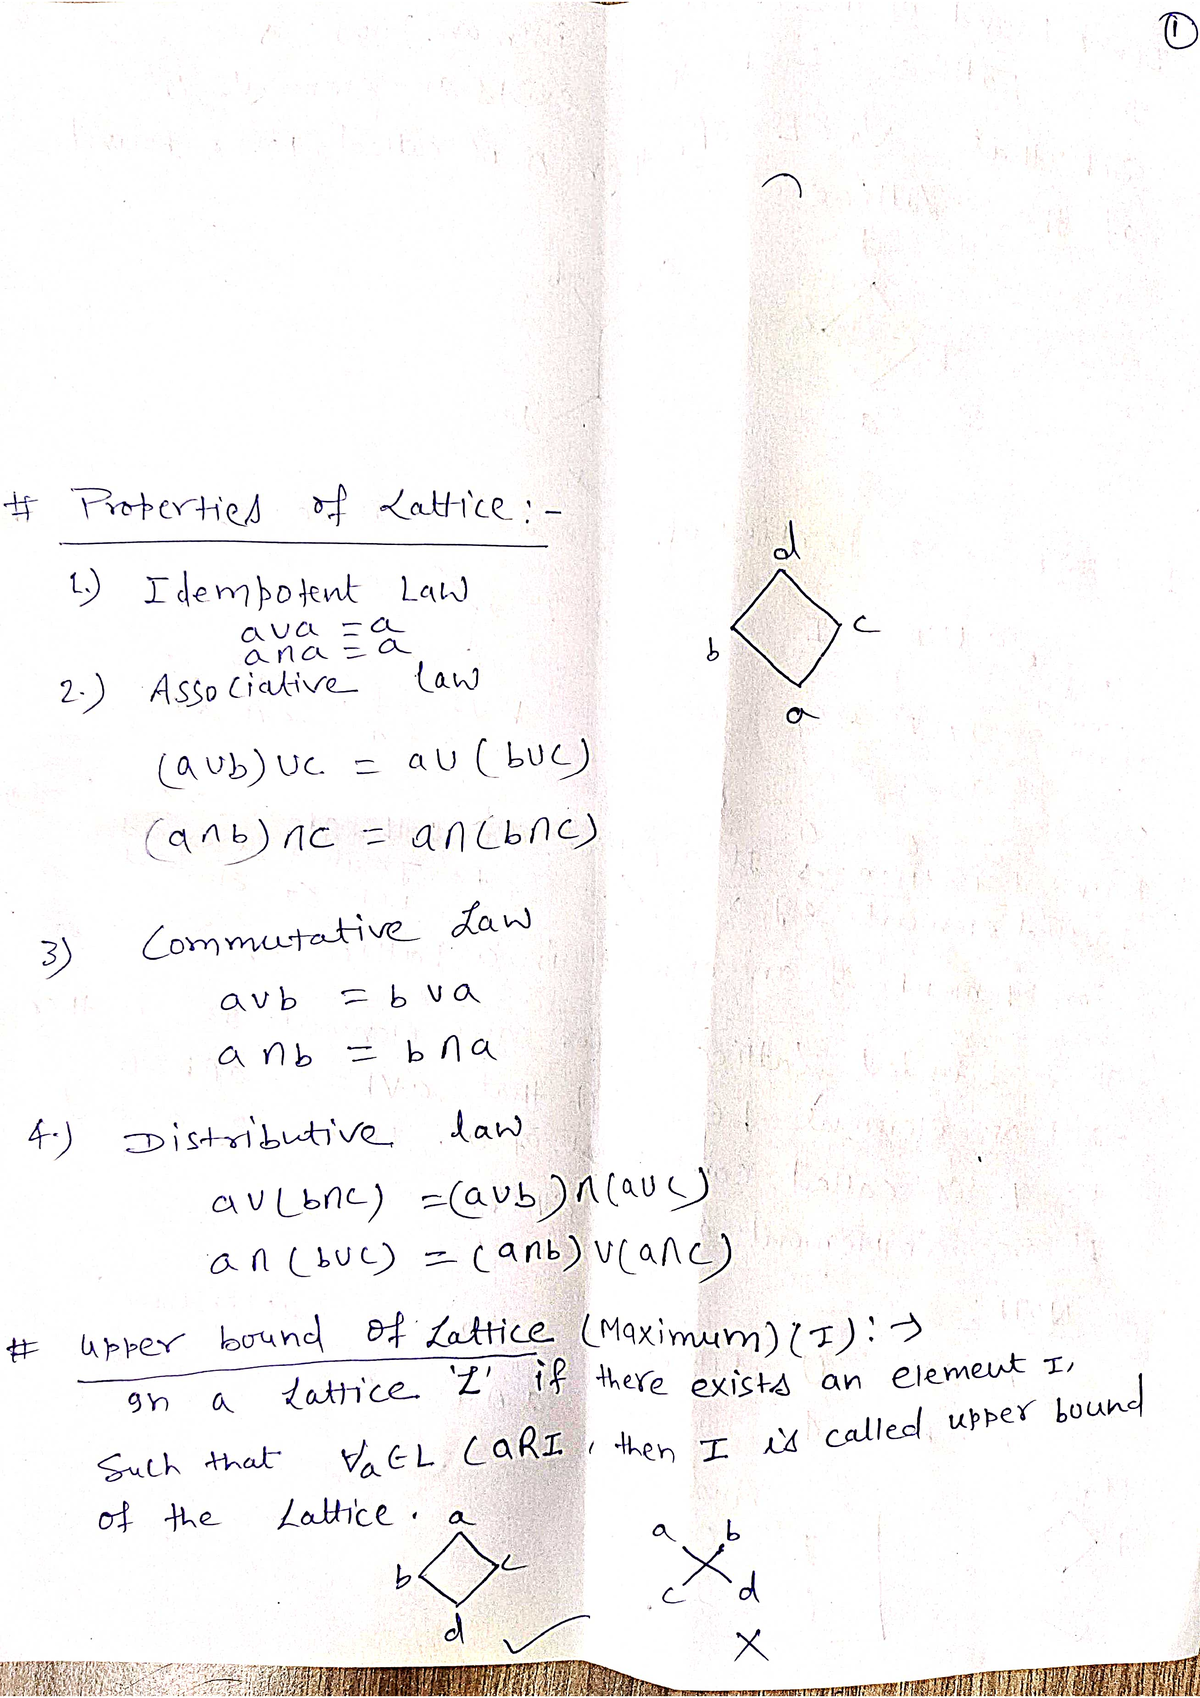 1
# Properties of Lattice :-
1.) Idempotent Law
a∪a = a
a∩a = a
2.) Associative law
(a∪b)∪c = a∪(b∪c)
(a∩b)∩c = a∩(b∩c)
d
b
c
a
3) Commutative Law
a∨b = b∨a
a∩b = b∩a
4.) Distributive law
a∪(b∩c) = (a∪b)∩(a∪c)
a∩(b∪c) = (a∩b)∪(a∩c)
# Upper bound of Lattice (Maximum) (I) : →
In a Lattice 'L' if there exists an element I,
Such that ∀a∈L (aRI, then I is called upper bound
of the Lattice.
a
b
c
d ✓
a b
c d
×